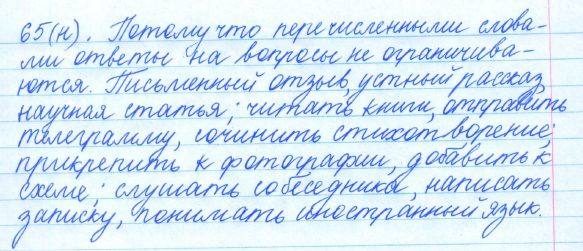 65(н). Потому что перечисленными слова-
ми ответы на вопросы не ограничива-
ются. Письменный отзыв, устный рассказ,
научная статья; читать книги, отправить
телеграмму, сочинить стихотворение;
прикрепить к фотографии, добавить к
схеме; слушать собеседника, написать
записку, понимать иностранный язык.